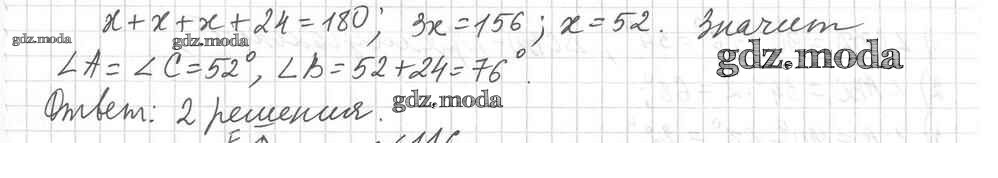 x + x + x + 24 = 180; 3x = 156; x = 52. Значит
gdz.moda
gdz.moda
gdz.moda
∠A = ∠C = 52°, ∠B = 52 + 24 = 76°.
Ответ: 2 решения.
gdz.moda